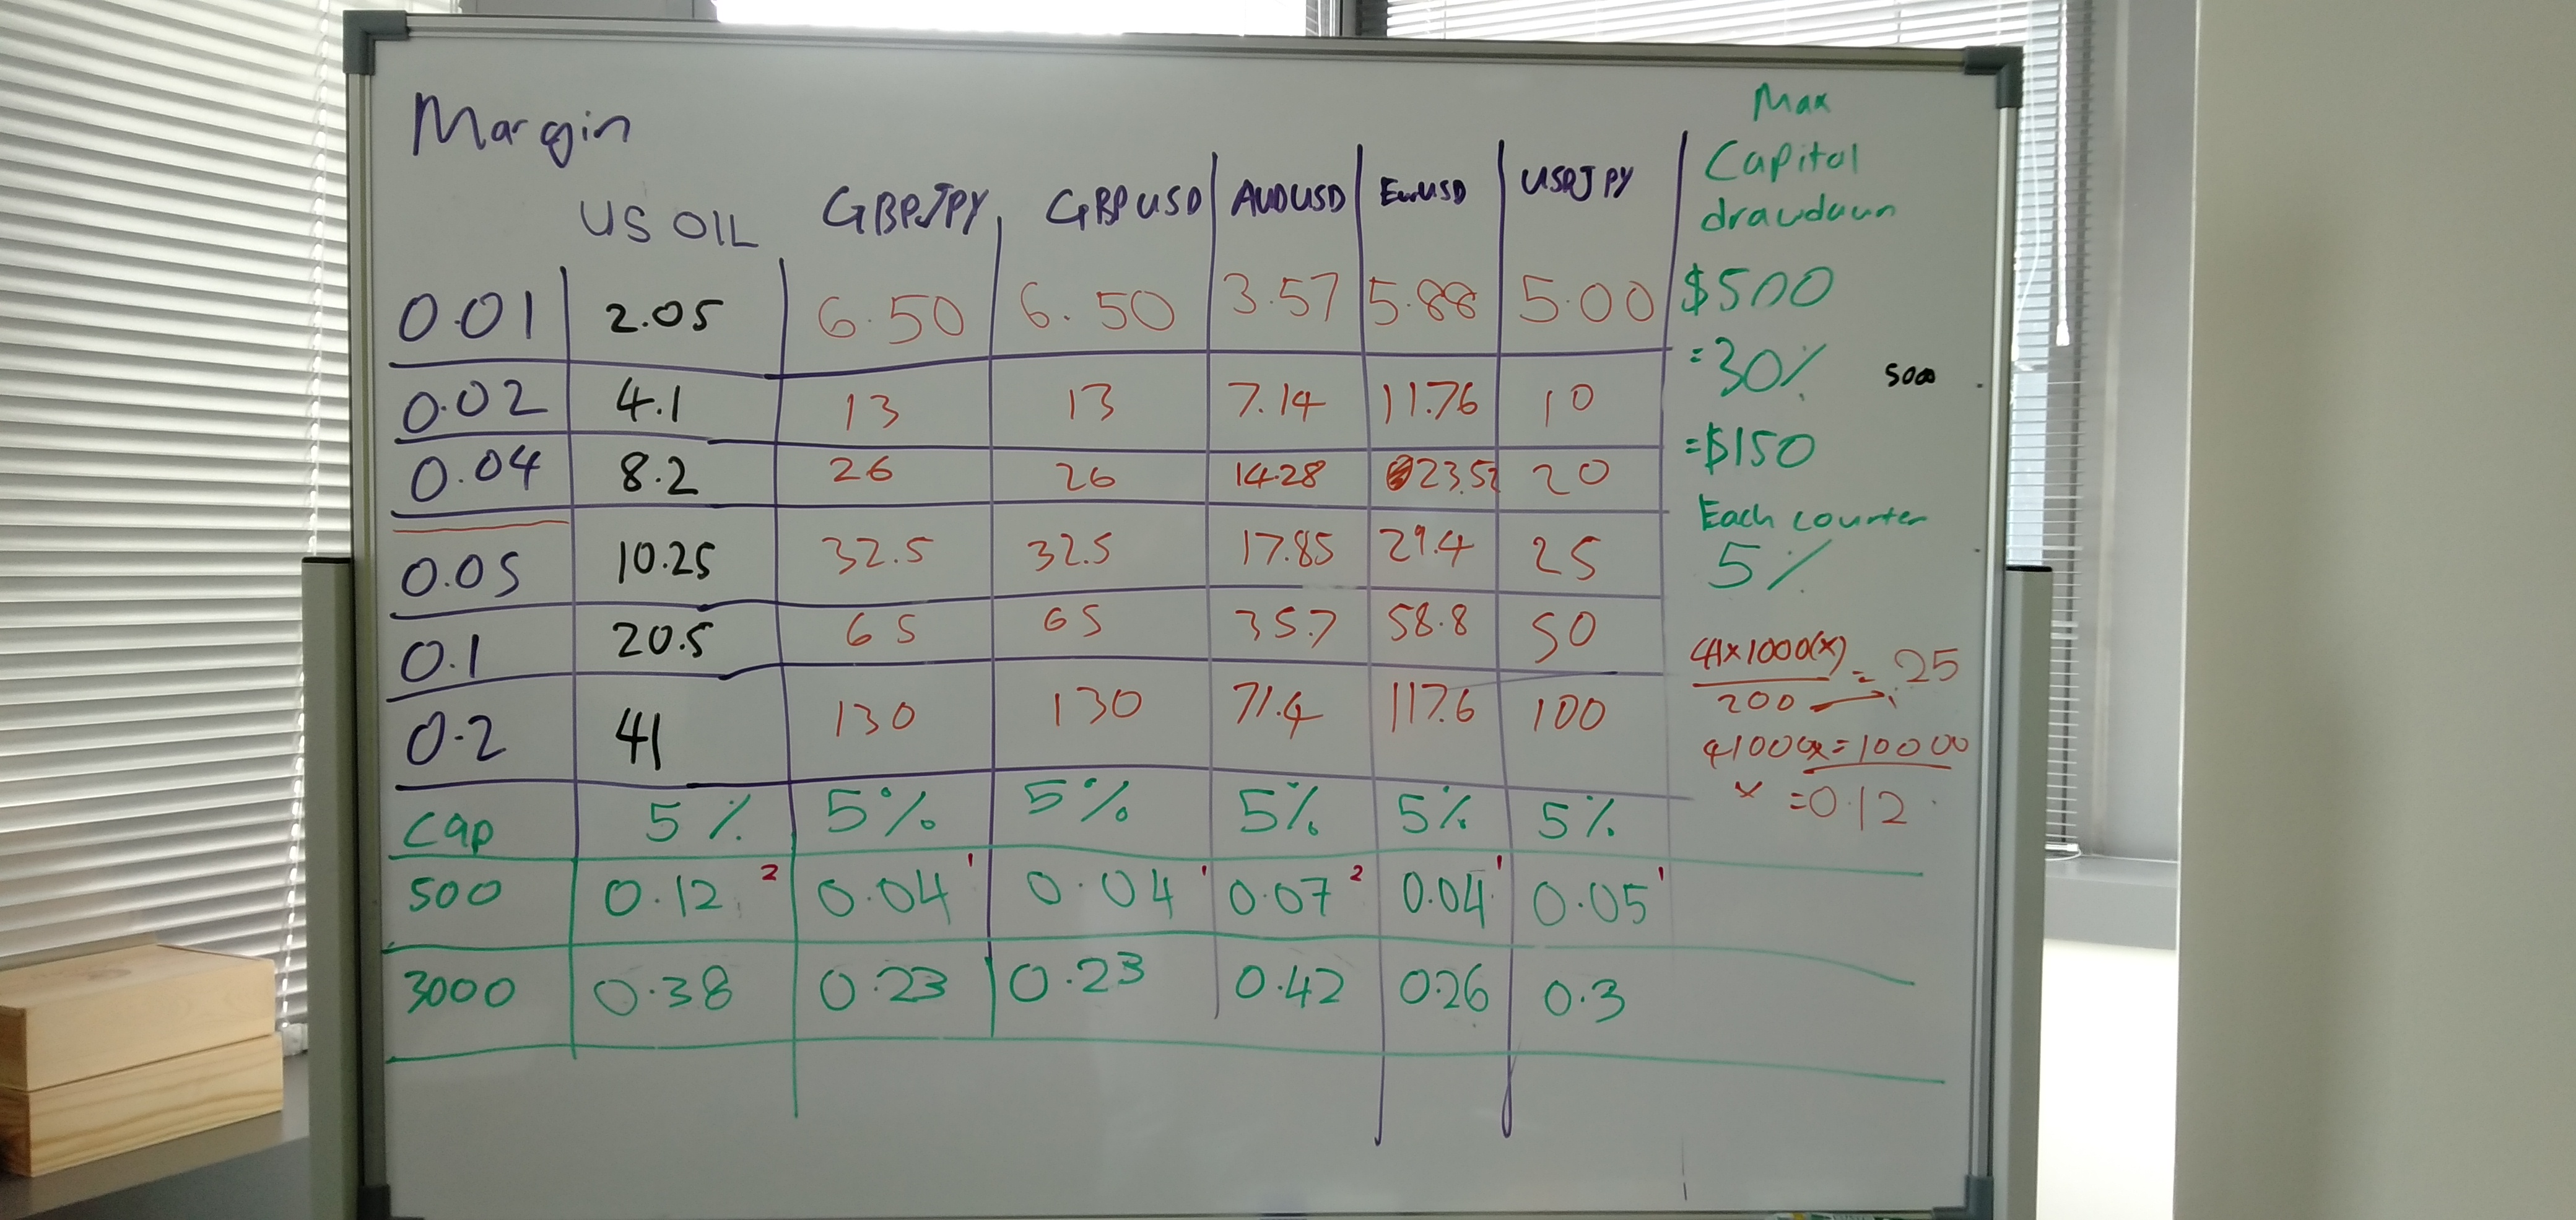 Margin
US OIL GBPJPY GBPUSD AUDUSD EurUSD USDJPY
0.01 2.05 6.50 6.50 3.57 5.88 5.00
0.02 4.1 13 13 7.14 11.76 10
0.04 8.2 26 26 14.28 23.52 20
0.05 10.25 32.5 32.5 17.85 29.4 25
0.1 20.5 65 65 35.7 58.8 50
0.2 41 130 130 71.4 117.6 100
Cap 5% 5% 5% 5% 5% 5%
500 0.12 2 0.04 1 0.04 1 0.07 2 0.04 1 0.05 1
3000 0.38 0.23 0.23 0.42 0.26 0.3
Max
Capital
drawdown
$500
=30%
5000
=$150
Each counter
5%
41x1000(x) = 25
200
41000x=10000
x =0.12